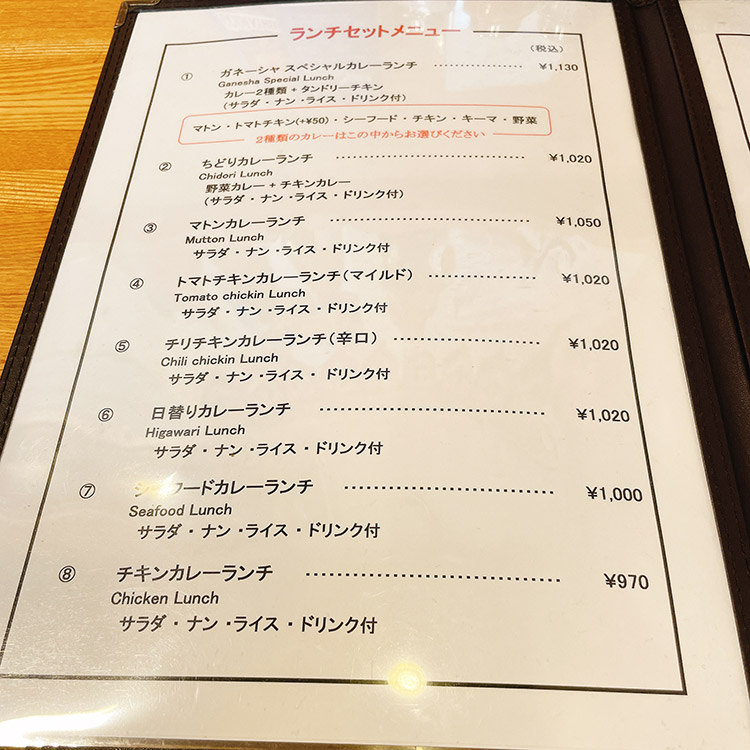 ランチセットメニュー
(税込)
① ガネーシャ スペシャルカレーランチ ¥1,130
Ganesha Special Lunch
カレー2種類 + タンドリーチキン
(サラダ・ナン・ライス・ドリンク付)
マトン・トマトチキン(+¥50)・シーフード・チキン・キーマ・野菜
2種類のカレーはこの中からお選びください
② ちどりカレーランチ ¥1,020
Chidori Lunch
野菜カレー + チキンカレー
(サラダ・ナン・ライス・ドリンク付)
③ マトンカレーランチ ¥1,050
Mutton Lunch
サラダ・ナン・ライス・ドリンク付
④ トマトチキンカレーランチ(マイルド) ¥1,020
Tomato chickin Lunch
サラダ・ナン・ライス・ドリンク付
⑤ チリチキンカレーランチ(辛口) ¥1,020
Chili chickin Lunch
サラダ・ナン・ライス・ドリンク付
⑥ 日替りカレーランチ ¥1,020
Higawari Lunch
サラダ・ナン・ライス・ドリンク付
⑦ シーフードカレーランチ ¥1,000
Seafood Lunch
サラダ・ナン・ライス・ドリンク付
⑧ チキンカレーランチ ¥970
Chicken Lunch
サラダ・ナン・ライス・ドリンク付